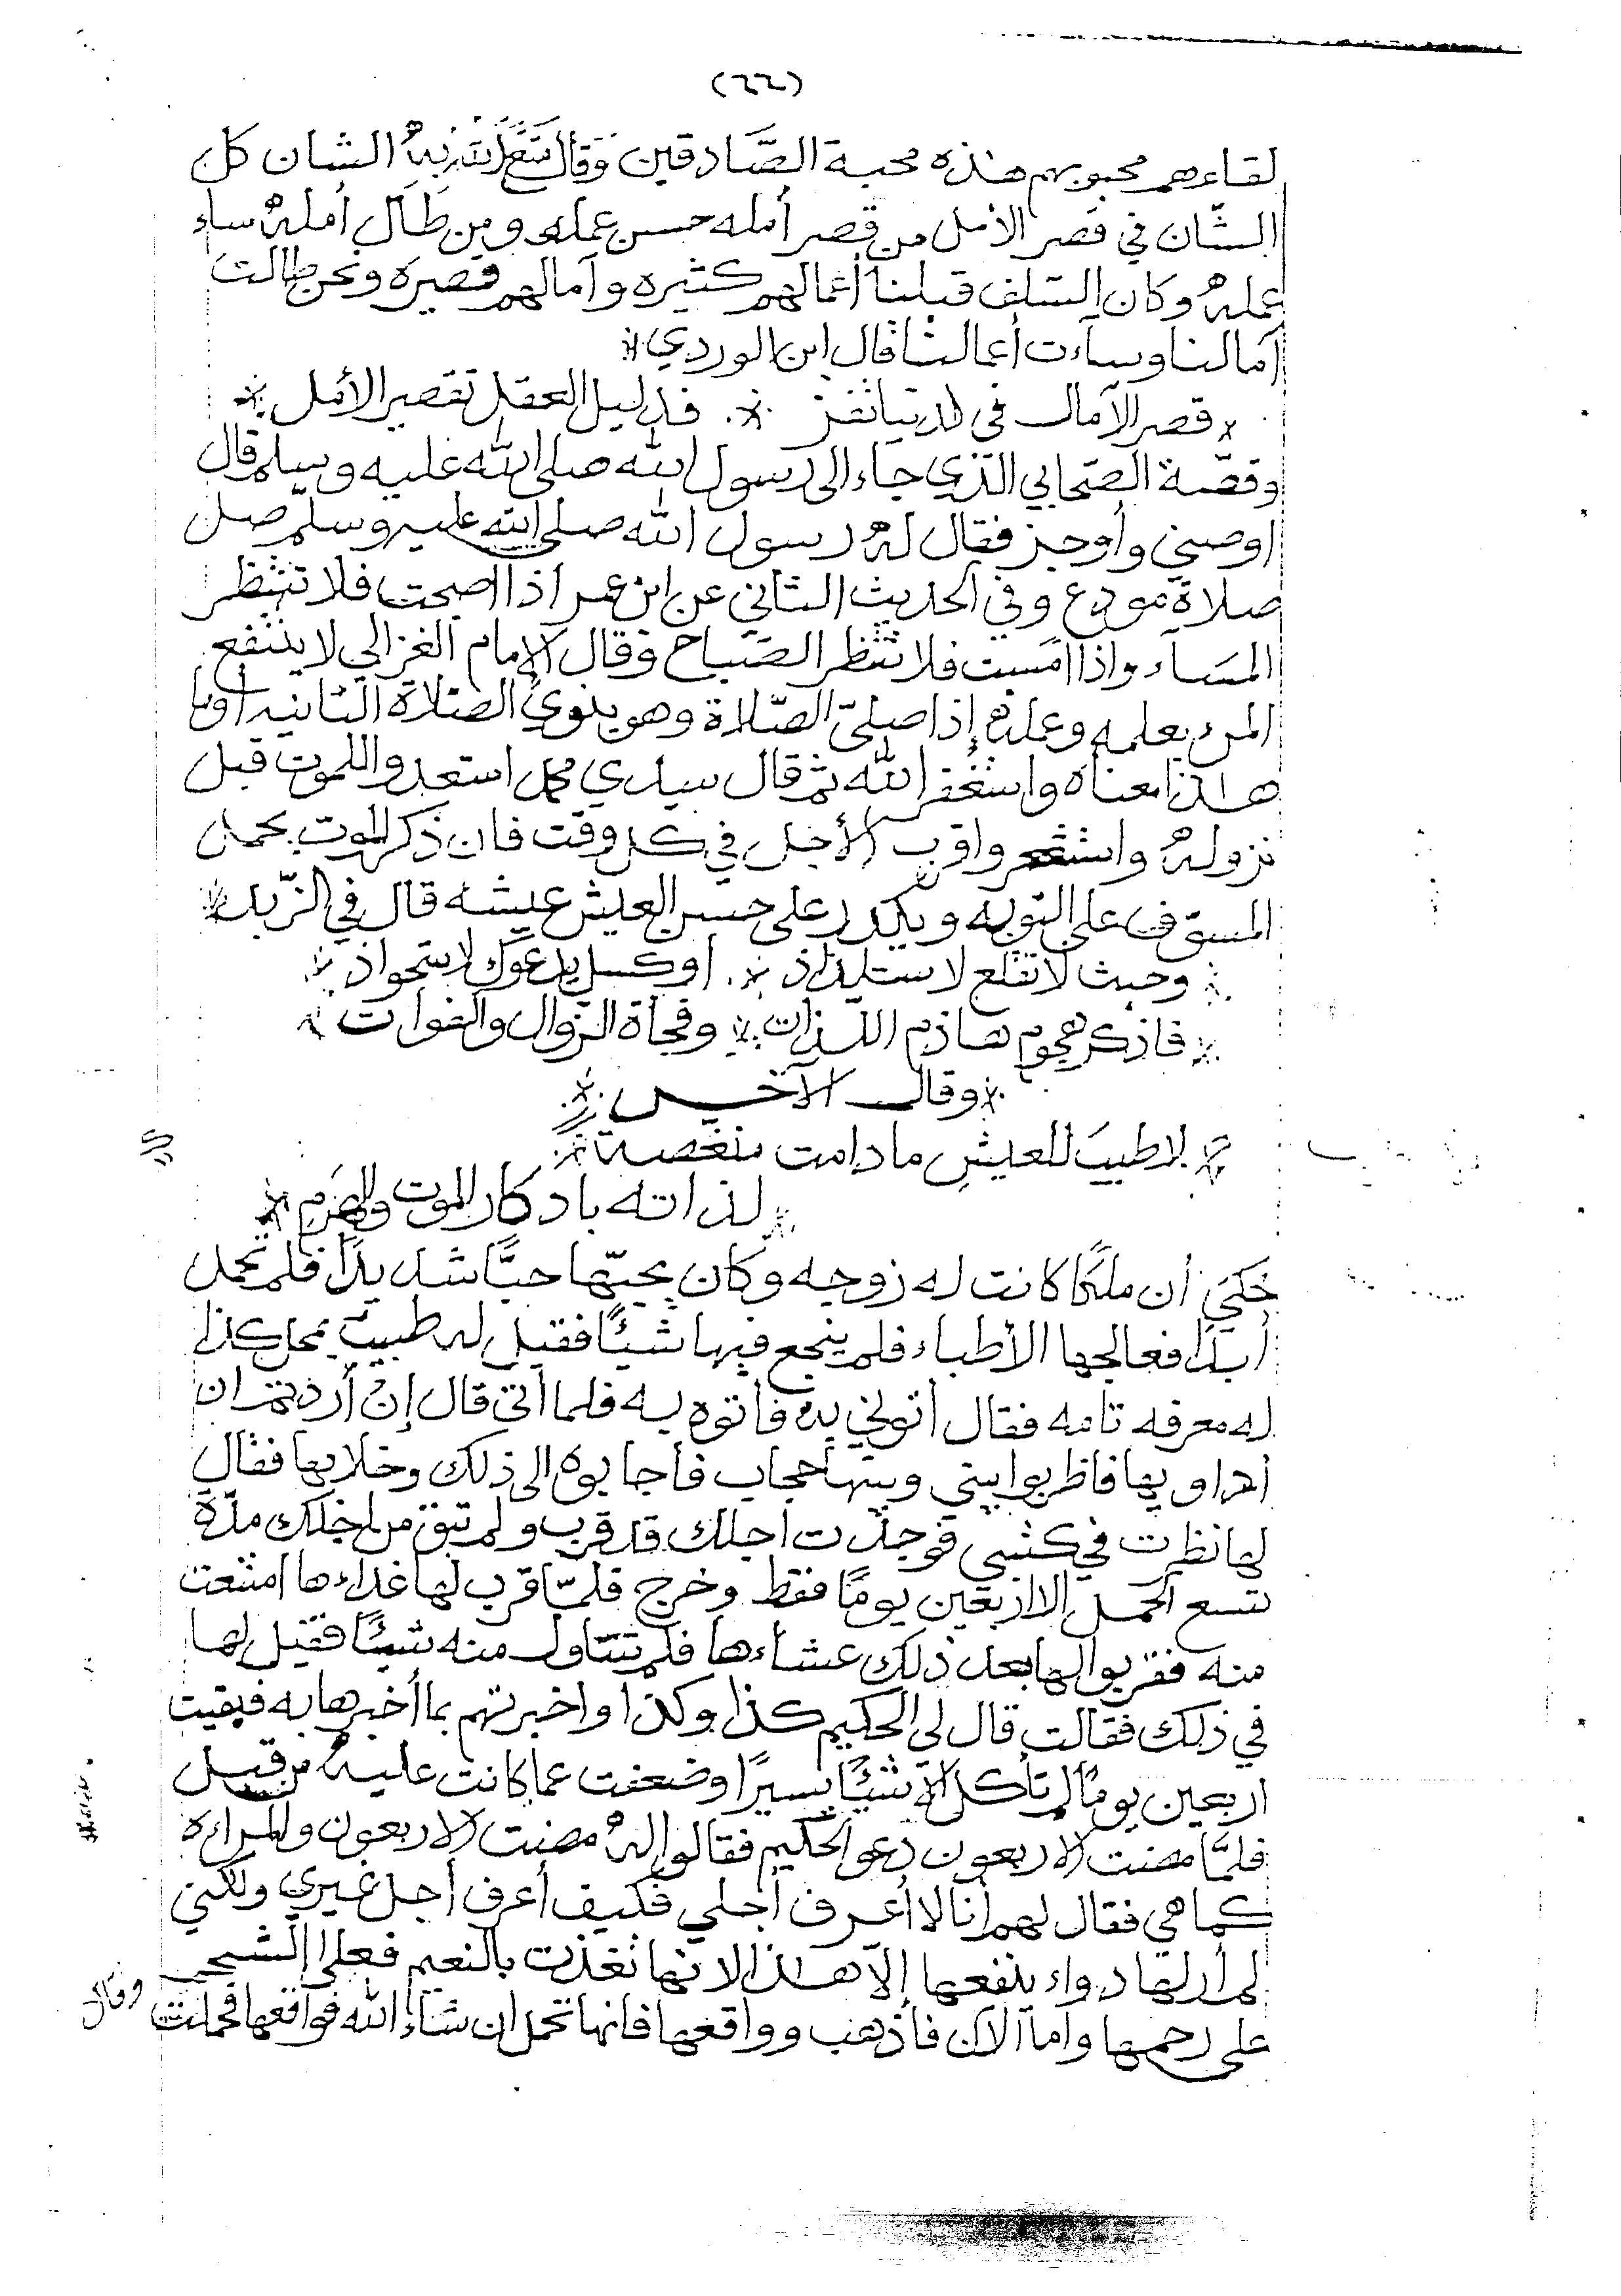 (٦٦)
لقاءهم محبوبهم هذه محبة الصَّادقين وَقال مَتَّع الله بهُ الشان كل
الشّان في قصر الأمل من قصر أمله حسن عمله ومن طَال أملهُ ساء
عملهُ وكان السّلف قبلنا أعمالهم كثيره وآمالهم قصيره ونحن طالت
آمالنا وساءت أعمالنا قال ابن الوردي
قصر الآمال في الدنيا تفز فدليل العقل تقصير الأمل
وقصّة الصّحابي الّذي جاء الى رسول الله صلى الله عليه وسلم قال
اوصني وأوجز فقال لهُ رسول الله صلى الله عليه وسلّم صل
صلاة مودع وفي الحديث الثاني عن ابن عمر اذا اصبحت فلا تنتظر
المسَآء واذا امسيت فلا تنتظر الصّباح وقال الامام الغزالي لا ينتفع
المرء بعلمه وعمله إذا صلىّ الصّلاة وهو ينوي الصّلاة الثانيه او ما
هذا معناه واستغفر الله ثم قال سيدي محمد استعدوا للموت قبل
نزولهُ واستشعروا قرب الأجل في كل وقت فان ذكر الموت يحمل
المسوّف على التوبه ويكدر على حسن العيش عيشه قال في الزّبد
وحيث لا تقلع لاستلذاذ أو كسل يدعوك لاستحواذ
فاذكر هجوم هاذم اللّذات وفجأة الزوال والفوات
وقال الآخر
لا طيبَ للعيشِ ما دامت منغصة
لذاته بادكار الموت والهَرَمِ
حُكيَ أن ملكًا كانت له زوجه وكان يحبّها حبًّا شديدًا فلم تحمل
أبدًا فعالجها الأطباء فلم ينجع فيها شيئًا فقيل له طبيبٌ بمحل كذا
له معرفه تامه فقال أتوني به فأتوه به فلما أتى قال إنْ أردتم ان
أداويها فاظربوا بيني وبينها حجاب فأجابوه الى ذلك وخلا بها فقال
لها نظرت في كتبي فوجدت اجلك قد قرب ولم تبق من اجلك مدّة
تسع الحمل الا اربعين يومًا فقط وخرج فلمّا قرب لها غداءها امتنعت
منه فقربوا لها بعد ذلك عشاءها فلم تتناول منه شيئًا فقيل لها
في ذلك فقالت قال لي الحكيم كذا وكذا واخبرتهم بما أخبرها به فبقيت
اربعين يومًا لم تأكل الآ شيئًا يسيرًا وضعفت عما كانت عليهُ من قبل
فلمَّا مضت الاربعون دعو الحكيم فقالوا لهُ مضت الاربعون والمراءه
كما هي فقال لهم أنا لا أعرف أجلي فكيف أعرف أجل غيري ولكني
لم أر لها دواء ينفعها إلآ هذا لانها تغذت بالنعيم فعلا الشحم
على رحمها واما الآن فأذهب وواقعها فانها تحمل ان شاء الله فواقعها فحملت
وقال